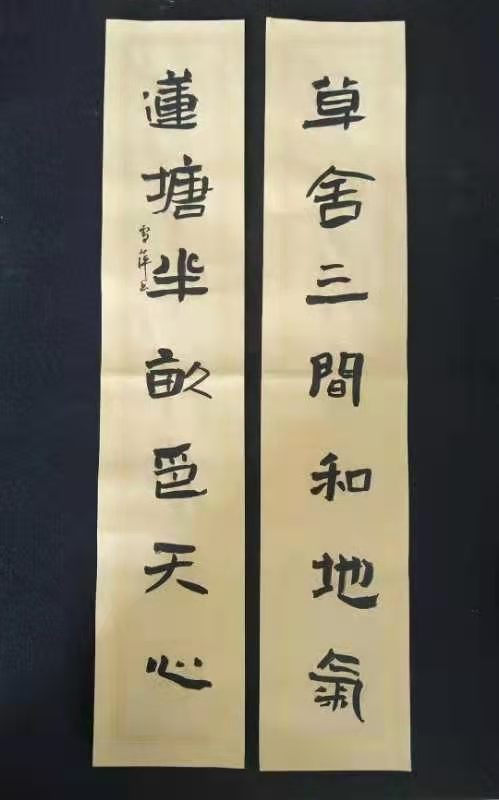 草舍三間和地氣
蓮塘半畝邑天心
雪萍书